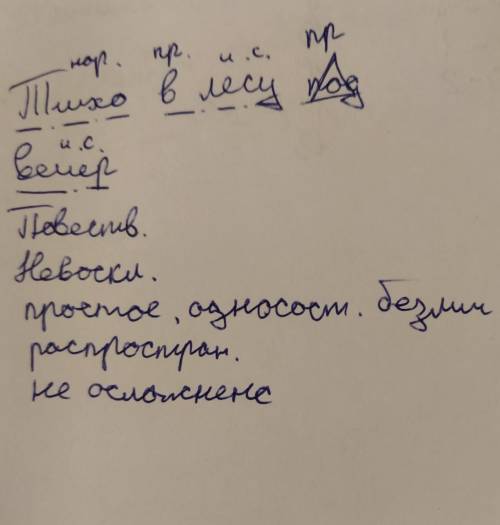 нар. пр. и.с. пр
Тихо в лесу под
и.с.
вечер
Повеств.
Невоскл.
простое, односост. безлич
распростран.
не осложнено